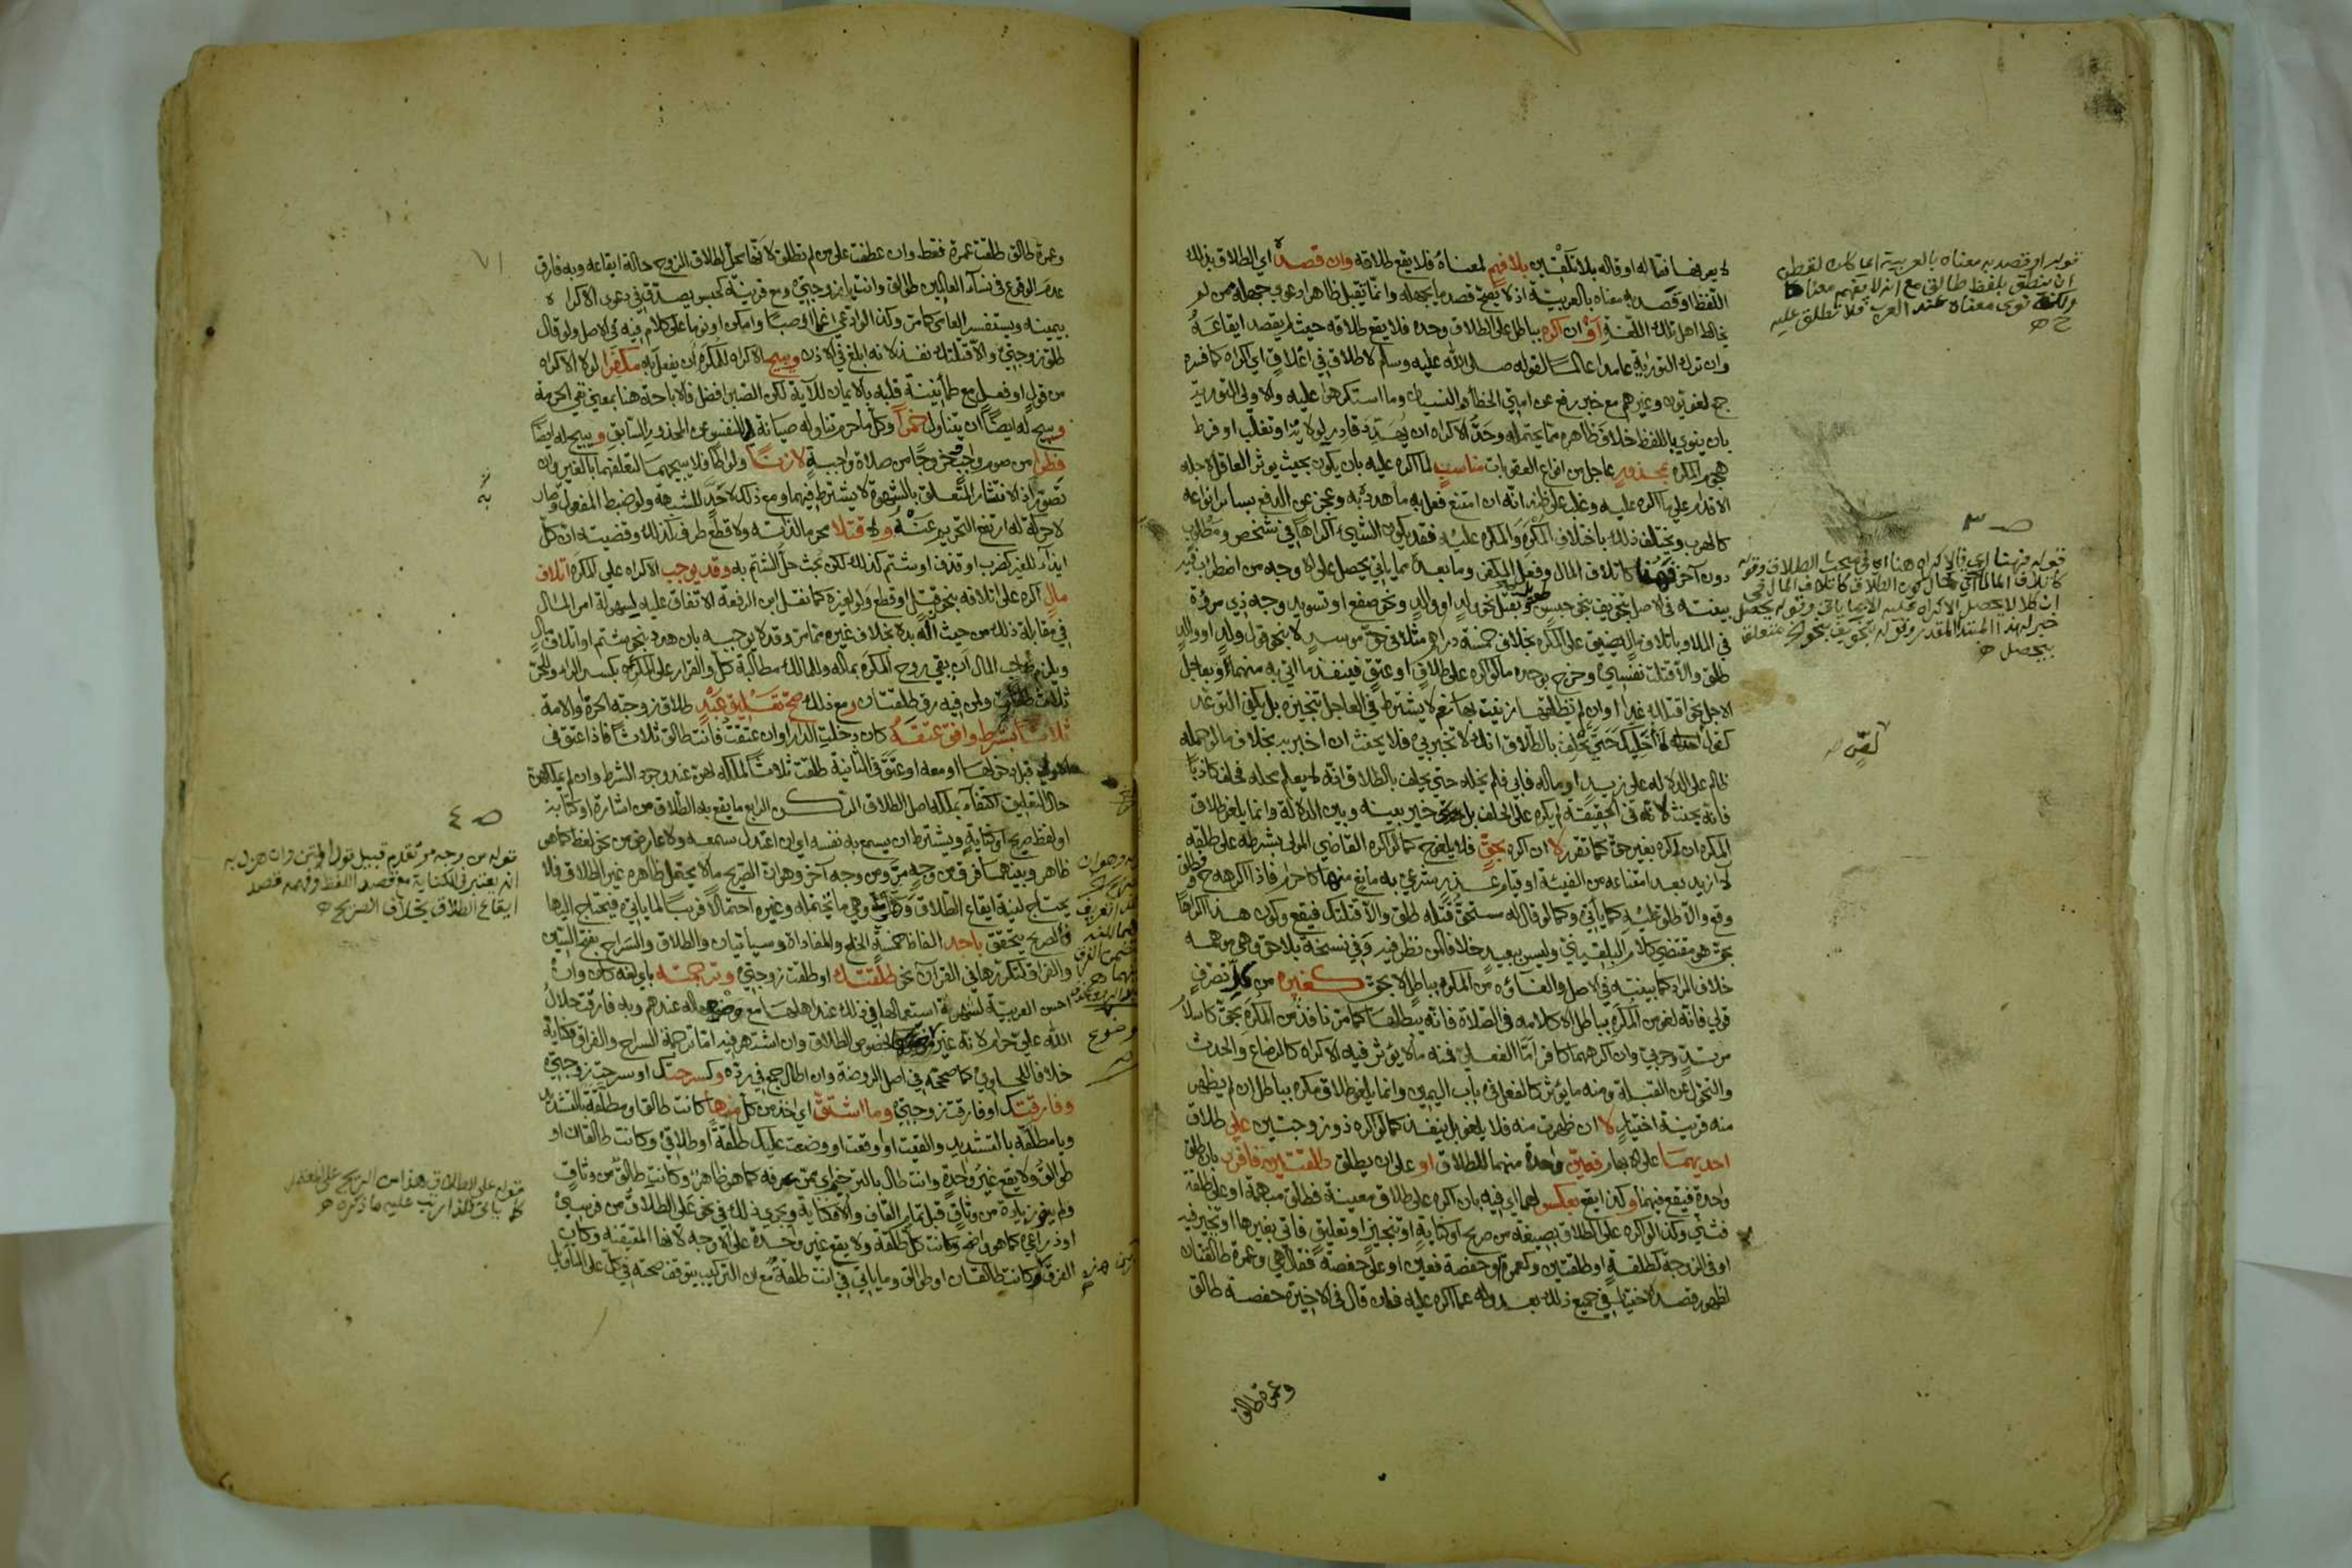 لا يعرفها فقاله او قاله بلا تلقين بلا فهم لمعناه فلا يقع طلاقه وان قصد اي الطلاق بذلك
اللفظ او قصد به معناه بالعربية اذ لا يصح قصد ما يجهله وانما تقبل ظاهرا دعوى جهله ممن لم
يخالط اهل تلك اللغة او ان اكره بباطل على الطلاق وحده فلا يقع طلاقه حيث لم يقصد ايقاعه
وان ترك التورية عامدا عالما لقوله صلى الله عليه وسلم لا طلاق في اغلاق اي اكراه كما فسره
جمع لغويون وغيرهم مع خبر رفع عن امتي الخطأ والنسيان وما استكرهوا عليه والاولى التورية
بان ينوي باللفظ خلاف ظاهره مما يحتمله وحد الاكراه ان يهدد قادر بولاية او تغلب او فرط
هجوم المكره بمحذور عاجل من انواع العقوبات مناسب لما اكره عليه بان يكون بحيث يوثر العاقل لاجله
الاقدام على ما اكره عليه وغلب على ظنه انه ان امتنع فعل به ما هدده به وعجز عن الدفع بسائر انواعه
كالهرب ويختلف ذلك باختلاف المكره والمكره عليه فقد يكون الشيء اكراها في شخص ومطلوب
دون آخر فهنا كاتلاف المال وفعل المكفر وما بعده مما ياتي يحصل على الاوجه من اضطراب فيه
بينته في الاصل بتخويف بنحو حبس طويل وبقتل نحو ولد او والد ونحو صفع او تسويد وجه ذي مروة
في الملا وباتلاف مال يضيق على المكره بخلاف خمسة دراهم مثلا في حق موسر لا بنحو قول ولد او والد
طلق والا قتلت نفسي وخرج بوحده ما لو اكره على طلاق او عتق فينفذ ما اتى به منهما وبعاجل
الاجل نحو اقتلك غدا وان لم تطلقها زنيت بها نعم لا يشترط في العاجل تنجيزه بل يكفي التوعد
كقول لا اخليك حتى تحلف بالطلاق انك لا تخبر بي فلا يحنث ان اخبر به بخلاف ما لو حمله
ظالم على الدلالة على زيد او ماله فابى فلم يخله حتى يحلف بالطلاق انه لا يعلم محله فحلف كاذبا
فانه يحنث لانه في الحقيقة لم يكره على الحلف بل خير بينه وبين الدلالة وانما يلغو طلاق
المكره ان اكره بغير حق كما تقرر لا ان اكره بحق فلا يلغو كما لو اكره القاضي المولي بشرطه على طلقة
لا ازيد بعد امتناعه من الفيئة او قيام عذر شرعي به مانع منها كاحرام فاذا اكرهه فطلق
وقع والا طلق عليه كما ياتي وكما لو قال له مستحق قتله طلق والا قتلتك فيقع وكون هذا اكراها
بحق هو مقتضى كلام البلقيني وليس ببعيد خلافا لمن نظر فيه وفي نسخة بلا حق وهي موهمة
خلاف المراد كما بينته في الاصل والغاؤه من المكره بباطل لا بحق كغيره من كل تصرف
قولي فانه لغو من المكره بباطل الا كلامه في الصلاة فانه يبطلها كما مر نافذ من المكره بحق كاسلام
مرتد وحربي وان اكرههما كافر اما الفعل فمنه ما لا يؤثر فيه الاكراه كالرضاع والحدث
والتحول عن القبلة ومنه ما يؤثر كالفعل في باب اليمين وانما يلغو طلاق مكره بباطل ان لم يظهر
منه قرينة اختيار لا ان ظهرت منه فلا يلغو بل ينفذ كما لو اكره ذو زوجتين على طلاق
احديهما على الابهام فعين واحدة منهما للطلاق او على ان يطلق طلقتين فافرد بان طلق
واحدة فيقع فيهما وكذا يقع بعكس لهما اي فيه بان اكره على طلاق معينة فطلق مبهمة او على طلقة
فثنى وكذا لو اكره على الطلاق بصيغة من صريح او كناية او تنجيز او تعليق فاتى بغيرها او تخير فيه
او في الزوجة كطلقة او طلقتين وكعمرة او حفصة فعين او على حفصة فقال هي وعمرة طالقتان
لظهور قصد الاختيار في جميع ذلك بعدوله عما اكره عليه فان قال في الاخيرة حفصة طالق
وعمرة طالق
قوله او قصد به معناه بالعربية اي كان لقن
ان ينطق بلفظ طالق مع انه لا يفهم معناها
ولكنه نوى معناه عند العرب فلا تطلق عليه
ص ٣
قوله فهنا اي في الاكراه هنا اي في مبحث الطلاق وقوله
كاتلاف المال اي كون الطلاق كاتلاف المال في
ان كلا لا يحصل الاكراه عليه الا بما ياتي وقوله يحصل
خبر لهذا المبتدا المقدر وقوله بتخويف بنحو الخ متعلق
بيحصل
٧١
وعمرة طالق طلقت عمرة فقط وان عطفت على من لم تطلق لانها محل لطلاق الزوج حالة ايقاعه وبه فارق
عدم الوقوع في نساء العالمين طوالق وانت يا زوجتي ومع قرينة كحبس يصدق في دعوى الاكراه
بيمينه ويستفسر العامي كما مر وكذا لو ادعى اغماء او صبا وامكن او نوما على كلام فيه في الاصل ولو قال
طلق زوجتي والا قتلتك نفذ لانه ابلغ في الاذن ويبيح الاكراه للمكره ان يفعل به مكفرا لولا الاكراه
من قول او فعل مع طمأنينة قلبه بالايمان للآية لكن الصبر افضل فالاباحة هنا بمعنى نفي الحرمة
ويبيح له ايضا ان يتناول خمرا وكل ما حرم تناوله صيانة للنفس عن المحذور السابق ويبيح له ايضا
فطرا من صوم واجب وخروجا من صلاة واجبة لا زنا ولواطا فلا يبيحهما لتعلقهما بالغير وان
تصور اذ الانتشار المتعلق بالشهوة لا يشترط فيهما ومع ذلك لا حد للشبهة ولو ضبط المفعول وصار
لا حركة له ارتفع التحريم عنه ولا قتلا محرما لذاته ولا قطع طرف كذلك وقضيته ان كل
ايذاء للغير كضرب او قذف او شتم كذلك لكن بحث حل الشتم به وقد يوجب الاكراه على المكره اتلاف
مال اكره على اتلافه بنحو قتل او قطع ولو لغيره كما نقل ابن الرفعة الاتفاق عليه لسهولة امر المال
في مقابلة ذلك من حيث انه بدله بخلاف غيره مما مر وقد لا يوجبه بان هدد بنحو شتم او اتلاف مال
ويلزم صاحب المال ان يقي روح المكره بماله وللمالك مطالبة كل والقرار على المكره بكسر الراء وللحر
ثلاث طلقات ولمن فيه رق طلقتان ومع ذلك صح تعليق عبد طلاق زوجته الحرة والامة
ثلاثا بشرط وافق عتقه كان دخلت الدار او ان عتقت فانت طالق ثلاثا فاذا عتق في
الاولى قبل دخولها او معه او عتق في الثانية طلقت ثلاثا لملكه لهن عند وجود الشرط وان لم يملكهن
حال التعليق اكتفاء بملكه اصل الطلاق الركن الرابع ما يقع به الطلاق من اشارة او كتابة
او لفظ صريح او كناية ويشترط ان يسمع به نفسه اي ان اعتدل سمعه ولا عارض من نحو لغط كما هو
ظاهر وبينهما فرق من وجه مر ومن وجه آخر وهو ان الصريح ما لا يحتمل ظاهره غير الطلاق فلا
يحتاج لنية ايقاع الطلاق والكناية وهي ما تحتمله وغيره احتمالا قريبا لما ياتي فيحتاج اليها
فالصريح يتحقق باحد الفاظ خمسة الخلع والمفاداة وسيأتيان والطلاق والسراح بفتح السين
والفراق لتكررها في القرآن نحو طلقتك او طلقت زوجتي وترجمته باي لغة كان وان
احسن العربية لشهرة استعمالها في ذلك عند اهلها مع وضوحها له عندهم وبه فارقت حلال
الله علي حرام لانه غير موضوع لخصوص الطلاق وان اشتهر فيه اما ترجمة السراح والفراق فكناية
خلافا للحاوي كما صححه في اصل الروضة وان اطال جمع في رده وكسرحتك او سرحت زوجتي
وفارقتك او فارقت زوجتي وما اشتق اي اخذ من كل منها كانت طالق او مطلقة بالتشديد
ويا مطلقة بالتشديد والقيت او اوقعت او وضعت عليك طلقة او طلاقي وكانت طالقان او
طوالق ولا يقع غير واحدة وانت طال بالترخيم اي ممن يعرفه كما هو ظاهر وكانت طالق من وثاق
ولم ينو زيادة من وثاق قبل تمام القاف والا فكناية ويجري ذلك في نحو على الطلاق من فرسي
او ذراعي كما هو واضح وكانت كل طلقة ولا يقع غير واحدة على الاوجه لانها المتيقنة وكان
الفرق كانت طالقان او طوالق وما ياتي في انت طلقة مع ان التركيب يتوقف صحته في كل على التأويل
ص ٤
قوله من وجه مر تقدم قبيل قول المتن وان هزل به
انه يعتبر في الكناية مع قصد اللفظ وفهمه قصد
ايقاع الطلاق بخلاف الصريح
قوله على الطلاق هذا من الصريح على المعتمد
كما ياتي فلذا رتب عليه ما ذكره